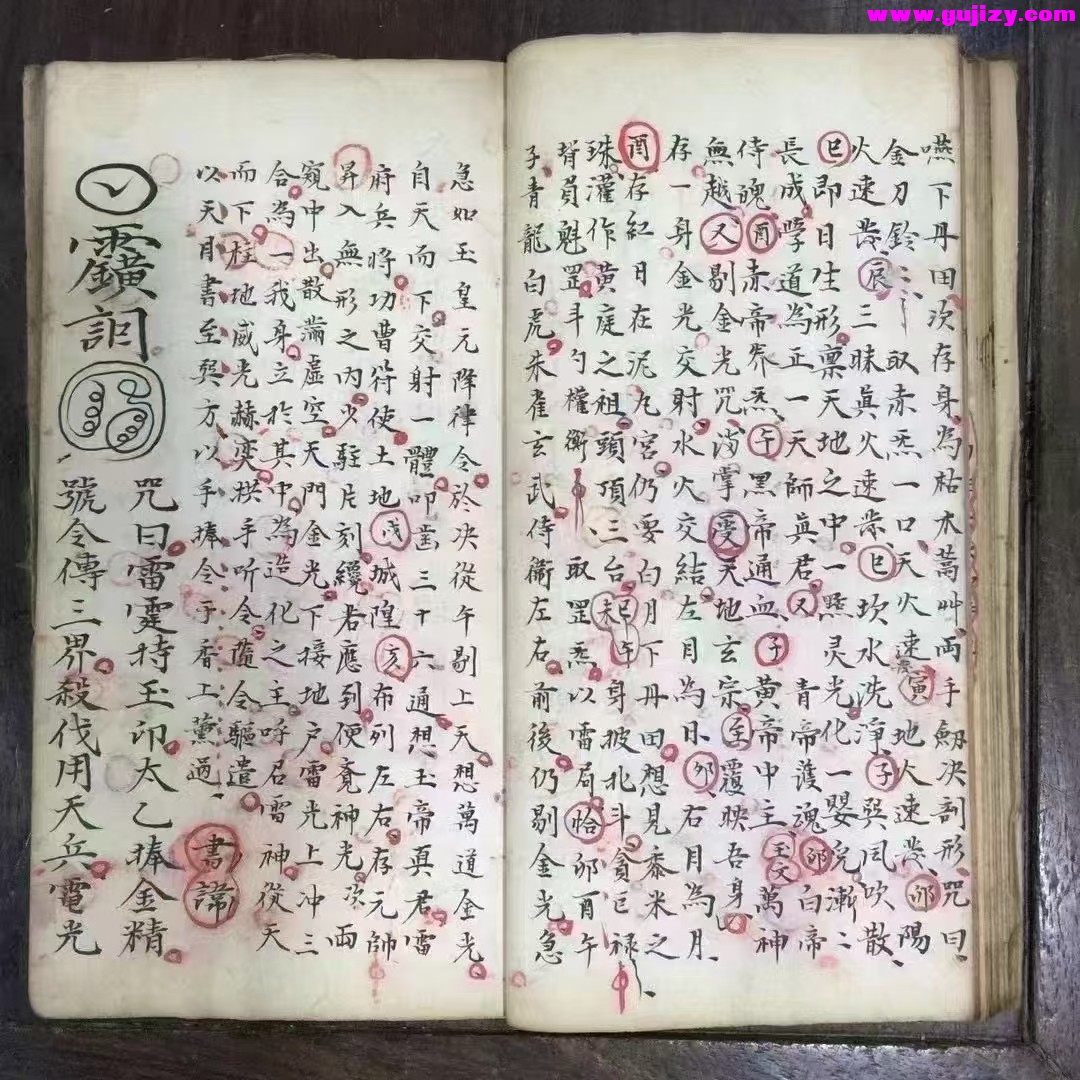 www.gujizy.com
嚥下丹田次存身為枯木蒿艸兩手劔决剖形咒曰
金刀鈴〻取赤炁一口天火速發寅地火速發卯陽
火速發辰三昧真火速發巳坎水洗淨子巽風吹散
巳即日生形稟天地之中一㸃灵光化一嬰兒漸〻
長成學道為正一天師真君又青帝護魂卯白帝
侍魄酉赤帝养炁午黑帝通血子黃帝中主玉文萬神
無越又剔金光咒滿掌天地玄宗至覆映吾身
存一身金光交射水火交結左目為日卯右月為月
酉存紅日在泥丸宮仍要白月下丹田想見黍米之
珠灌作黃庭之祖頭頂三台未巳午身披北斗貪巨祿
員魁罡斗勺權衡取罡炁以雷局恰卯酉午
子青龍白虎朱雀玄武侍衛左右前後仍剔金光急
急如玉皇元降律令於决從午剔上天想萬道金光
自天而下交射一體叩齒三十六通想玉帝真君雷
府兵將功曹符使土地戌城隍亥布列左右存元帥
昇入無形之內少駐片刻纔若應到便竟神光次兩
窺中出散滿虛空天門金光下接地戶雷光上冲三
合為一我身立於其中為造化之主呼召雷神從天
而下柱地威光赫奕拱手听令隨令驅遣
以天目書至契方以手捧令于香上薰過書諱
咒曰雷霆持玉印太乙捧金精
號令傳三界殺伐用天兵電光